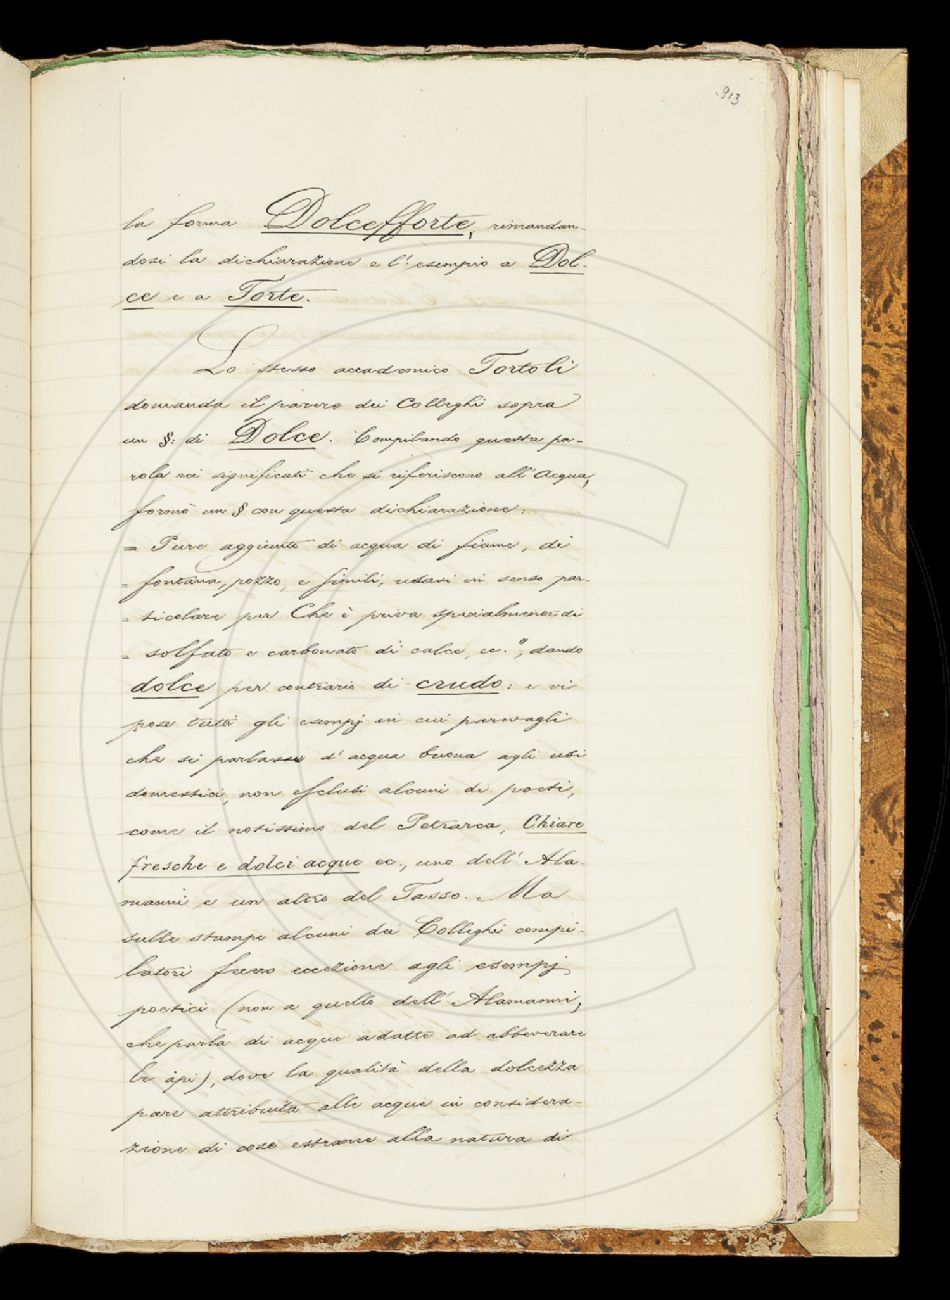 913
la forma Dolcefforte, rimandan-
dosi la dichiarazione e l'esempio a Dol-
ce e a Forte.
Lo stesso accademico Tortoli
domanda il parere dei Colleghi sopra
un §: di Dolce. Compilando questa pa-
rola nei significati che si riferiscono all'Acqua,
formò un § con questa dichiarazione:
= Pure aggiunto di acqua di fiume, di
= fontana, pozzo, e simili, usasi in senso par-
= ticolare per Che è priva specialmente di
= solfato e carbonato di calce, ec.", dando
dolce per contrario di crudo: e vi
pose tutti gli esempj in cui parevagli
che si parlasse d'acqua buona agli usi
domestici, non esclusi alcuni di poeti,
come il notissimo del Petrarca, Chiare
fresche e dolci acque ec., uno dell'Ala-
manni e un altro del Tasso. Ma
sulle stampe alcuni dei Colleghi compi-
latori fecero eccezione agli esempj
poetici (non a quello dell'Alamanni,
che parla di acque adatte ad abbeverare
le api), dove la qualità della dolcezza
pare attribuita alle acque in considera-
zione di cose estranee alla natura di